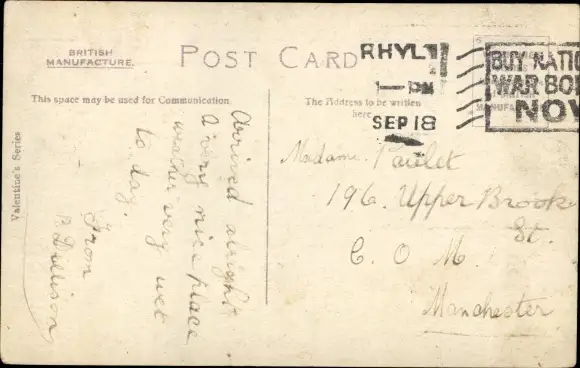 BRITISH
MANUFACTURE.
POST CARD
RHYL
1 — PM
SEP 18
BUY NATIO
WAR BO
NOW
This space may be used for Communication.
The Address to be written
here
Valentine's Series
Arrived alright
A very nice place
weather very wet
to day.
From
Madame
196. Upper Brook
St.
C. O M.
Manchester